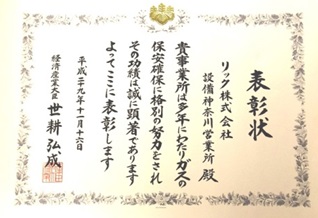 表彰状
リック株式会社
設備神奈川営業所 殿
貴事業所は多年にわたりガスの
保安確保に格別の努力をされ
その功績は誠に顕著であります
よってここに表彰します
平成二十九年十一月十六日
経済産業大臣 世耕弘成